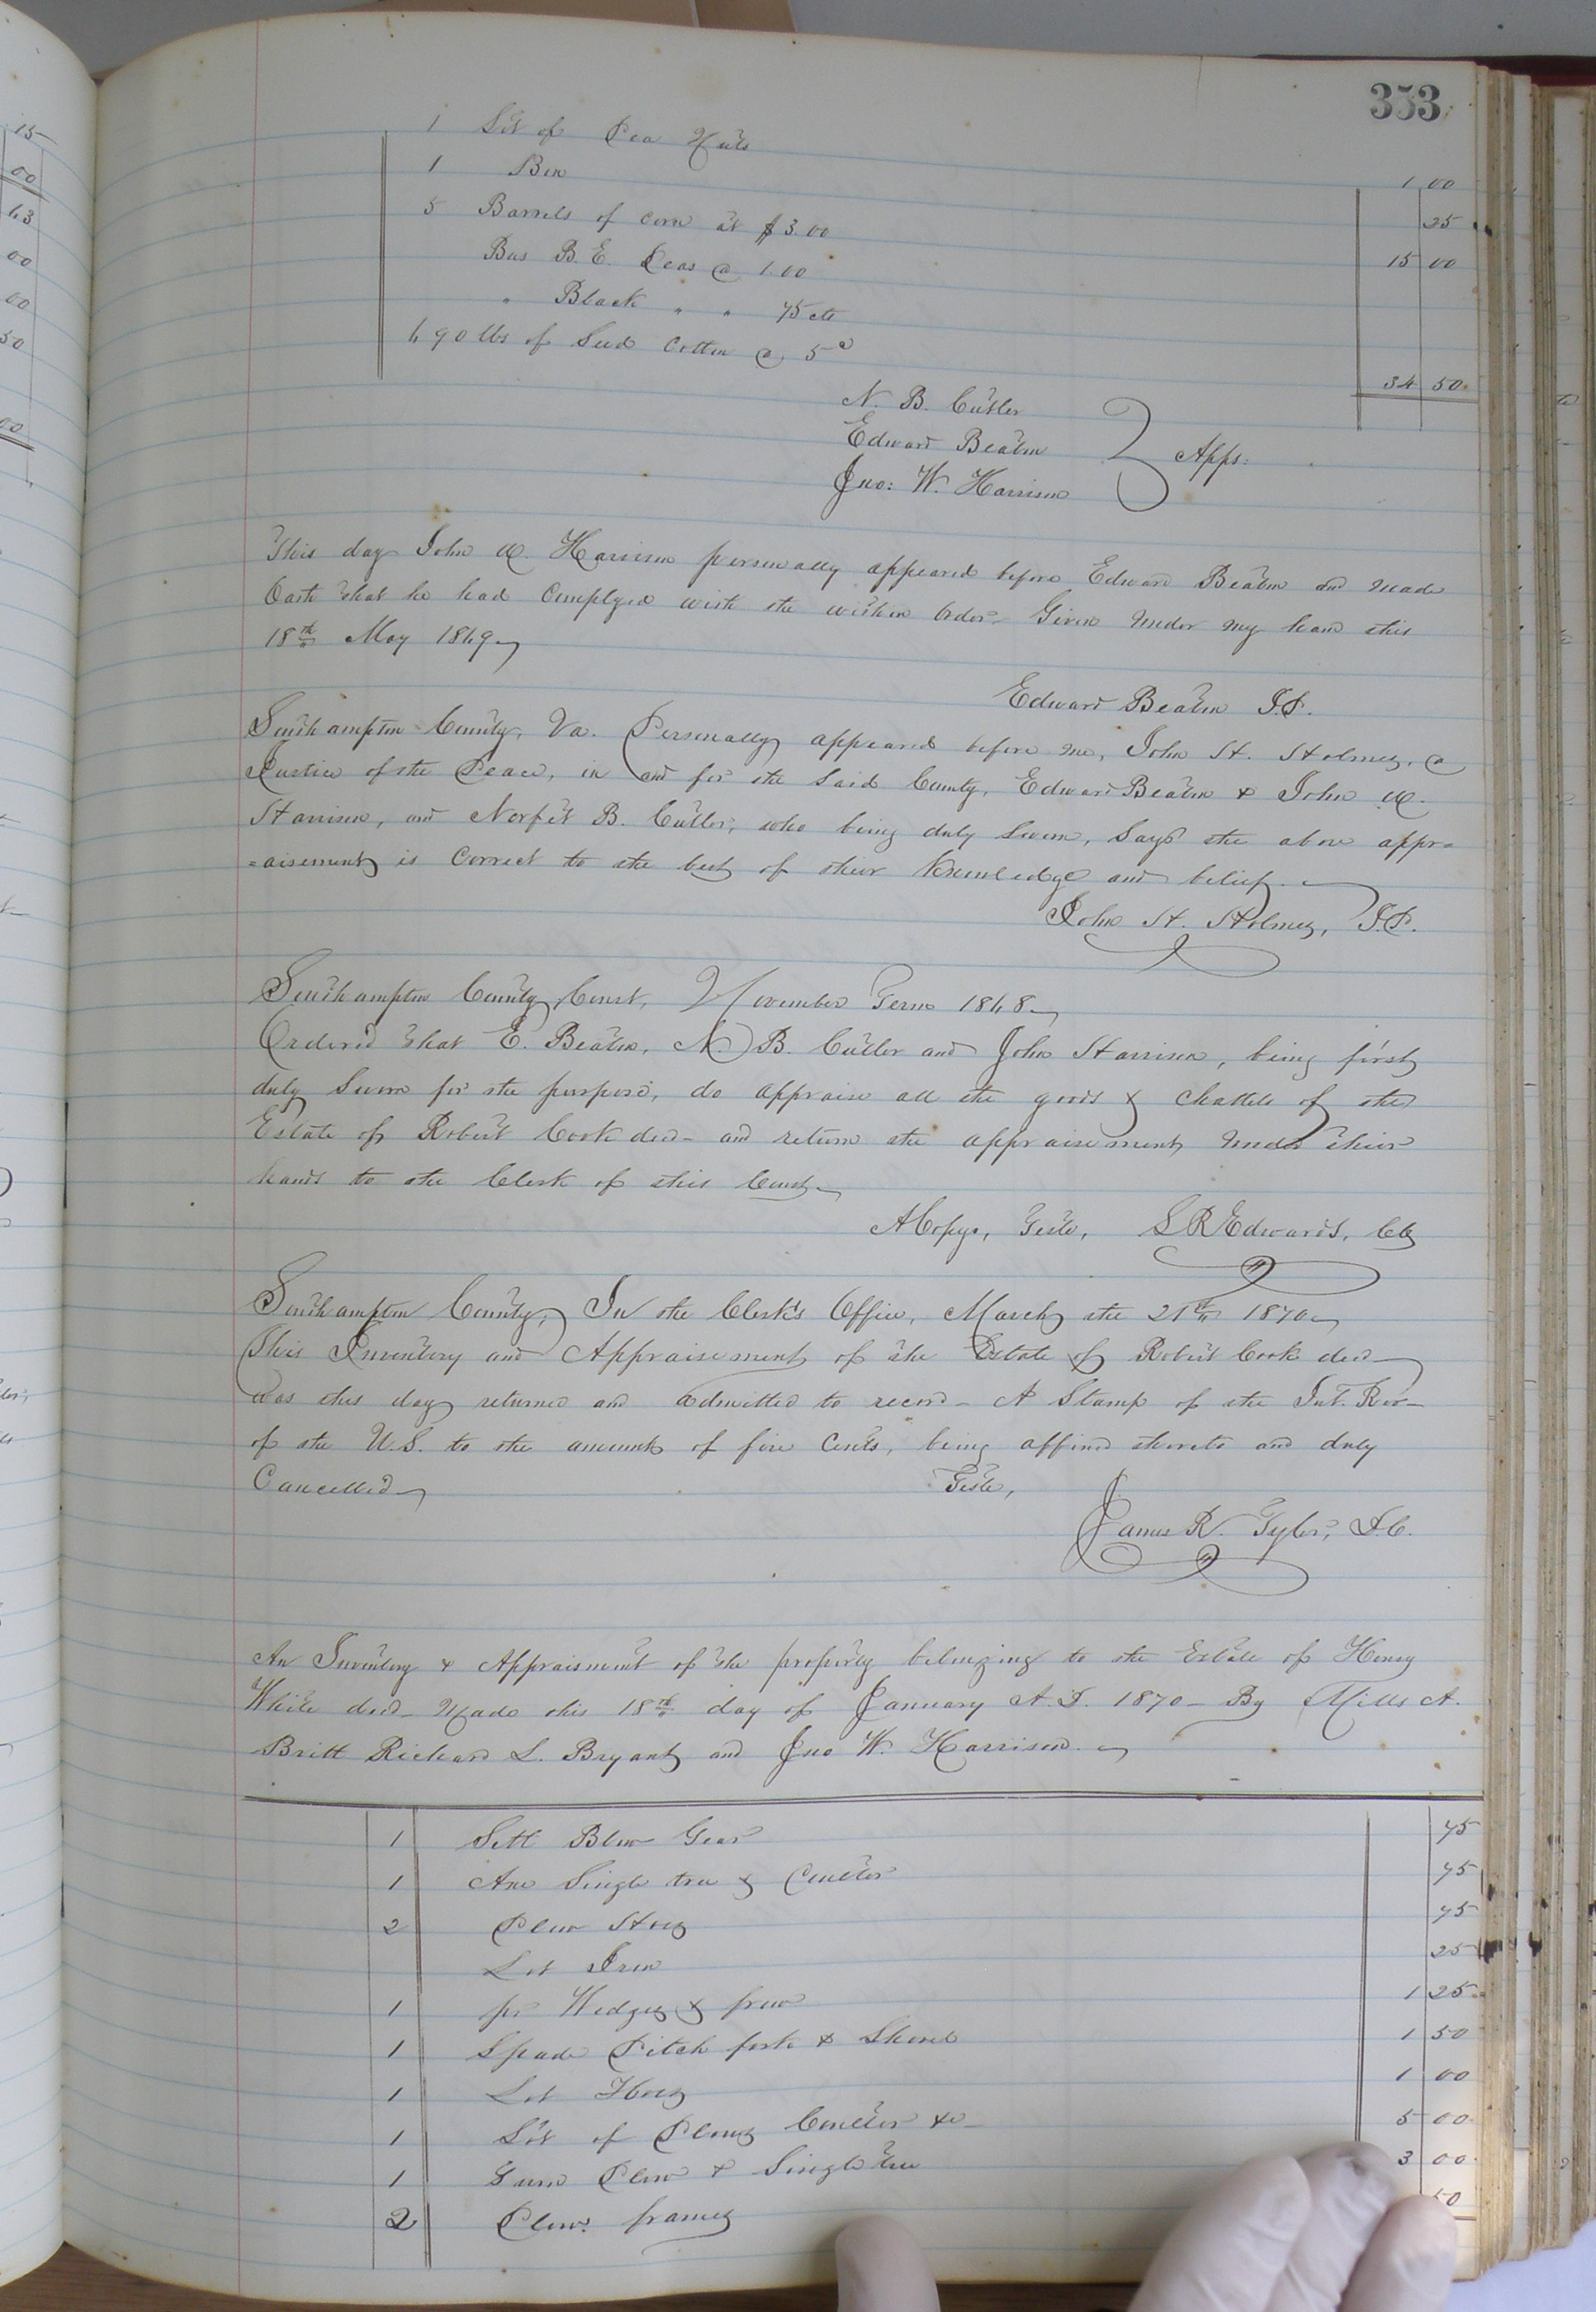 353
1 Lot of Pea Nuts 1 00
1 Bin 25
5 Barrels of corn at $3.00 15 00
Bus B. E. Peas @ 1.00
" Black " " 75 cts
690 lbs of Seed Cotton @ 5c 34 50
N. B. Cutler
Edward Beaton
Jno: W. Harrison
Apps:
This day John W. Harrison personally appeared before Edward Beaton and made
Oath that he had Complyed with the within Order. Given Under my hand this
18th May 1869
Edward Beaton J.P.
Southampton County, Va. Personally appeared before me, John H. Holmes, a
Justice of the Peace, in and for the Said County, Edward Beaton & John W.
Harrison, and Norfet B. Cutler, who being duly Sworn, Says the above appr=
=aisement is Correct to the best of their Knowledge and belief.
John H. Holmes, J.P.
Southampton County Court, November Term 1868
Ordered that E. Beaton, N. B. Cutler and John Harrison, being first
duly Sworn for the purpose, do appraise all the goods & chattels of the
Estate of Robert Cook decd- and return the appraisement Under their
hands to the Clerk of this Court
A Copy, Teste, L R Edwards, Clk
Southampton County, In the Clerk's Office, March the 21st 1870
This Inventory and Appraisement of the Estate of Robert Cook decd
was this day returned and admitted to record - A Stamp of the Int. Rev-
of the U.S. to the amount of five Cents, being affixed thereto and duly
Cancelled
Teste,
James R. Tyler, D.C.
An Inventory & Appraisment of the property belonging to the Estate of Henry
White decd- Made this 18th day of January A.D. 1870 - By Mills A.
Britt Richard L. Bryant and Jno W. Harrison.
1 Sett Blow Gear 75
1 Axe Single tree & Coulter 75
2 Plow Hoes 75
Lot Iron 25
1 pr Wedges & frow 1 25
1 Spade Pitch fork & Shovel 1 50
1 Lot Hoes 1 00
1 Lot of Plows Coulter &c- 5 00
1 Turn Plow & Single tree 3 00
2 Plow frames 50
15
00
63
00
00
50
00